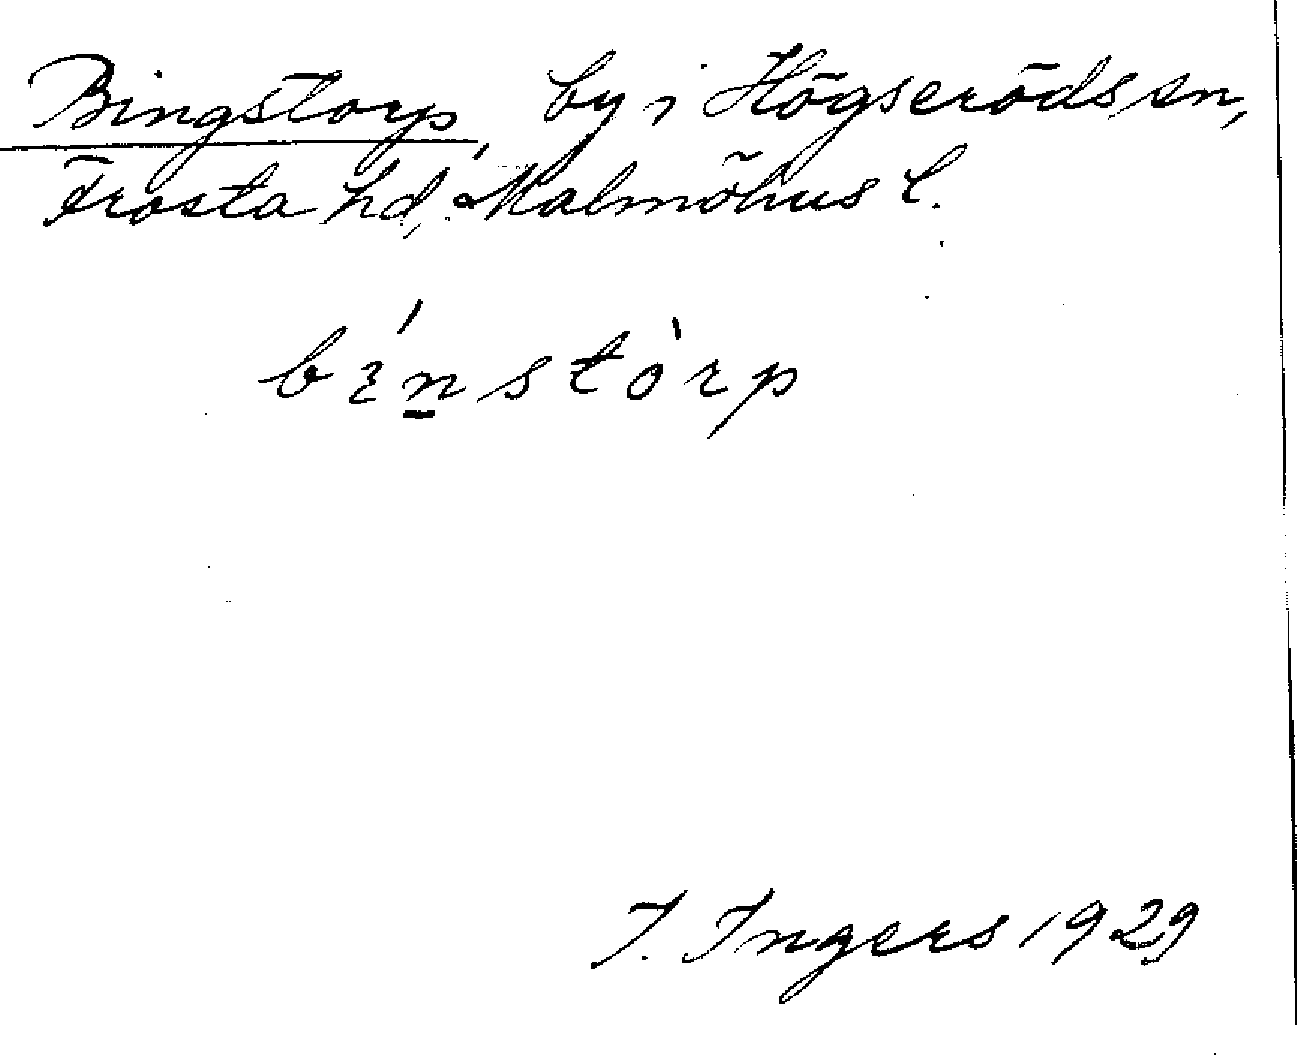 Bingstorp, by i Högseröds sn,
Frosta hd, Malmöhus l.
bɛ́n̲stòrp
I. Ingers 1929